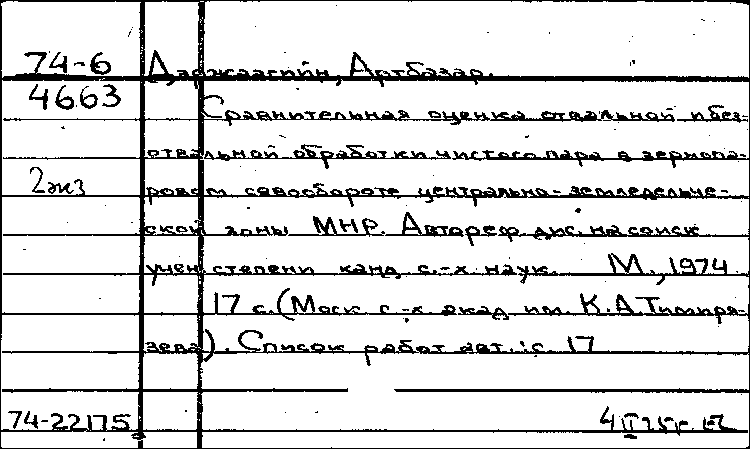 74-6 Даржаагийн, Артбазар.
4663 Сравнительная оценка отвальной и без-
отвальной обработки чистого пара в зернопа-
2 экз ровом севообороте центрально-земледельче-
ской зоны МНР. Автореф. дис. на соиск
учен степени канд с.-х. наук. М., 1974
17 с. (Моск с-х акад им. К.А. Тимиря-
зева). Список работ авт.: с. 17
74-22175 4 II 75г.